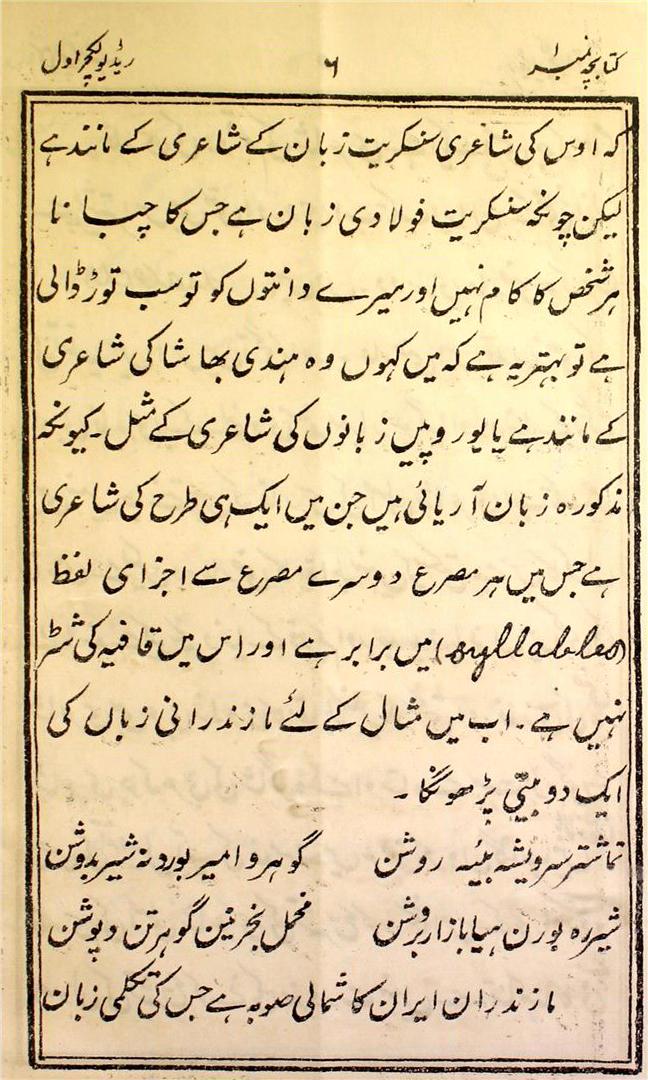 کتابچہ نمبر ۱ ۶ ریڈیو لکچر اول
کہ اوس کی شاعری سنسکریت زبان کے شاعری کے مانند ہے
لیکن چونکہ سنسکریت فولادی زبان ہے جس کا چبانا
ہر شخص کا کام نہیں اور میرے دانتوں کو تو سب توڑ ڈالی
ہے تو بہتر یہ ہے کہ میں کہوں وہ ہندی بھاشا کی شاعری
کے مانند ہے یا یوروپیں زبانوں کی شاعری کے مثل۔ کیونکہ
مذکورہ زبان آریائی ہیں جن میں ایک ہی طرح کی شاعری
ہے جس میں ہر مصرع دوسرے مصرع سے اجزای لفظ
(syllables) میں برابر ہے اور اس میں قافیہ کی شرط
نہیں ہے۔ اب میں مثال کے لئے مازندرانی زباں کی
ایک دو بیتی پڑھونگا۔
روشن گوهر و امیر بوردنه شیر بدوشن
شیره بورن هیا بازار بروشن مخمل بخرنین گوهر تن دپوشن
مازندران ایران کا شمالی صوبہ ہے جس کی تکلمی زبان